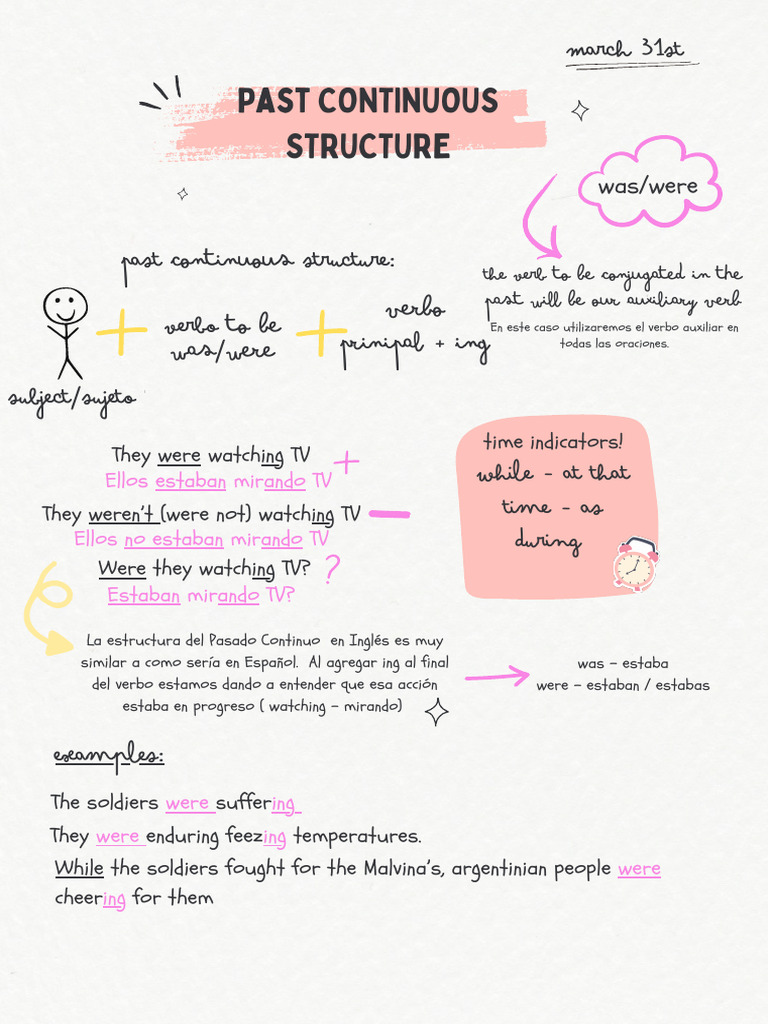 march 31st
PAST CONTINUOUS
STRUCTURE
was/were
the verb to be conjugated in the
past will be our auxiliary verb
En este caso utilizaremos el verbo auxiliar en
todas las oraciones.
past continuous structure:
subject/sujeto
+
verbo to be
was/were
+
verbo
prinipal + ing
They were watching TV +
Ellos estaban mirando TV
They weren't (were not) watching TV -
Ellos no estaban mirando TV
Were they watching TV? ?
Estaban mirando TV?
time indicators!
while - at that
time - as
during
La estructura del Pasado Continuo en Inglés es muy
similar a como sería en Español. Al agregar ing al final
del verbo estamos dando a entender que esa acción
estaba en progreso ( watching - mirando)
was - estaba
were - estaban / estabas
examples:
The soldiers were suffering
They were enduring feezing temperatures.
While the soldiers fought for the Malvina's, argentinian people were
cheering for them